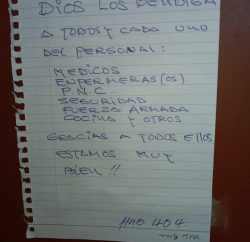 DIOS LOS BENDIGA
A TODOS Y CADA UNO
DEL PERSONAL:
MEDICOS
ENFERMERAS(OS)
P.N.C.
SEGURIDAD
FUERZA ARMADA
COCINA Y OTROS
GRACIAS A TODOS ELLOS
ESTAMOS MUY
BIEN!!
HAB 404.